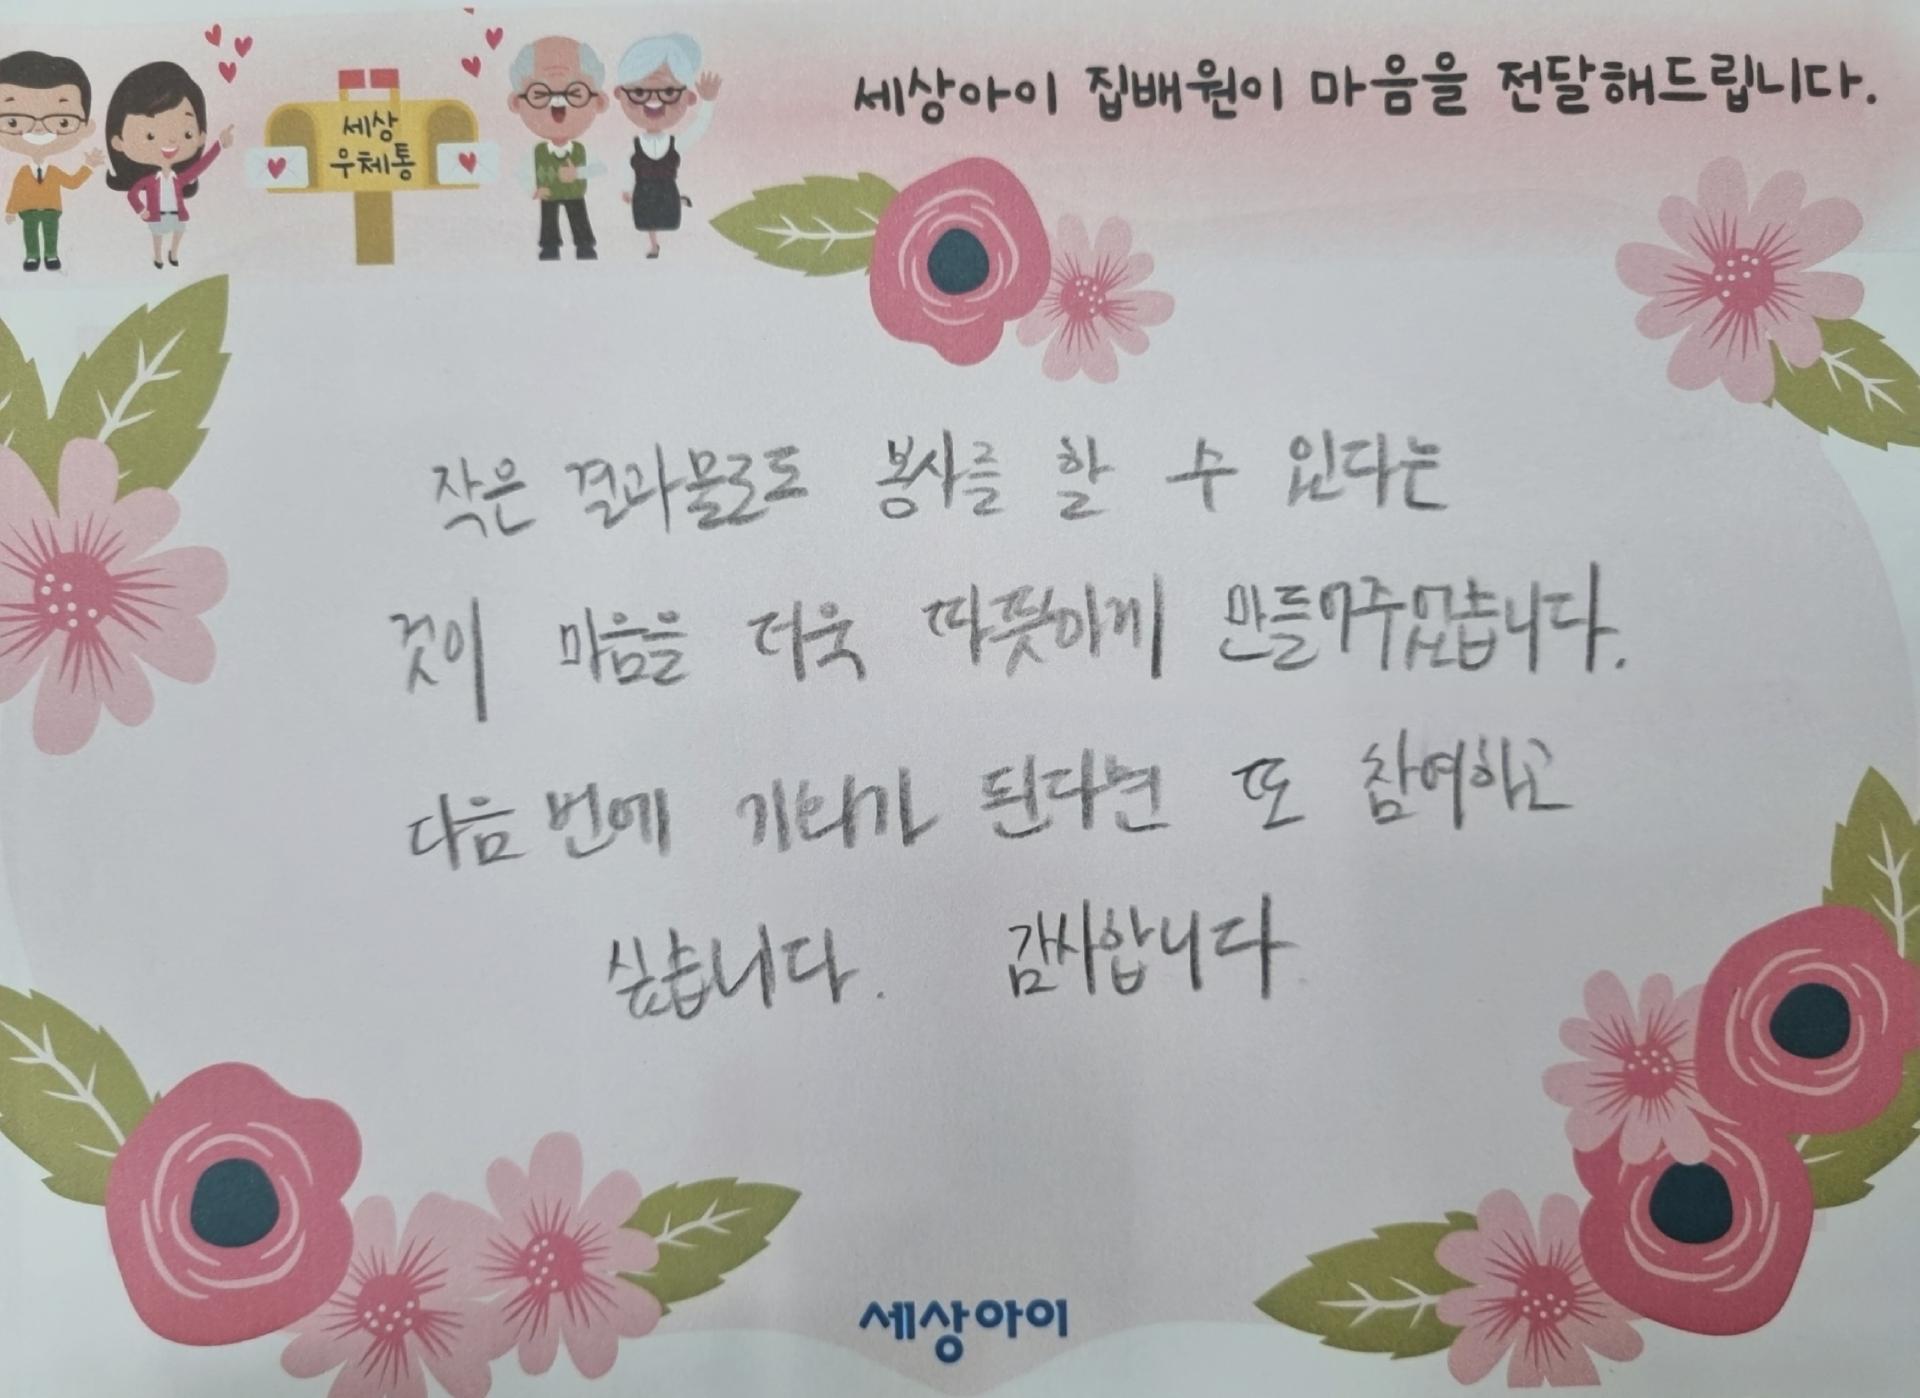 세상아이 집배원이 마음을 전달해드립니다.
세상
우체통
작은 결과물로도 봉사를 할 수 있다는
것이 마음을 더욱 따뜻하게 만들어주었습니다.
다음 번에 기회가 된다면 또 참여하고
싶습니다. 감사합니다
세상아이